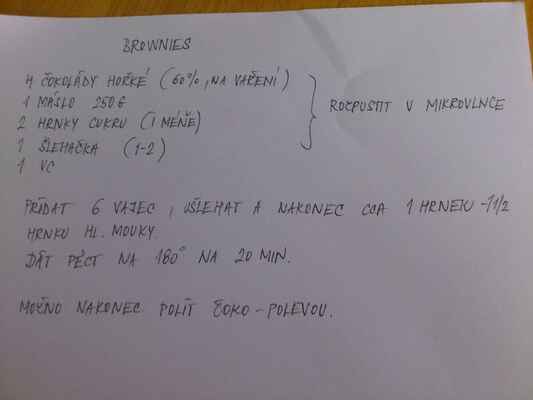 BROWNIES
4 ČOKOLÁDY HOŘKÉ (60%, NA VAŘENÍ)
1 MÁSLO 250G
2 HRNKY CUKRU (I MÉNĚ)
1 ŠLEHAČKA (1-2)
1 VC
ROZPUSTIT V MIKROVLNCE
PŘIDAT 6 VAJEC, UŠLEHAT A NAKONEC CCA 1 HRNEK -1 1/2
HRNKU HL. MOUKY.
DÁT PÉCT NA 180° NA 20 MIN.
MOŽNO NAKONEC POLÍT ČOKO-POLEVOU.